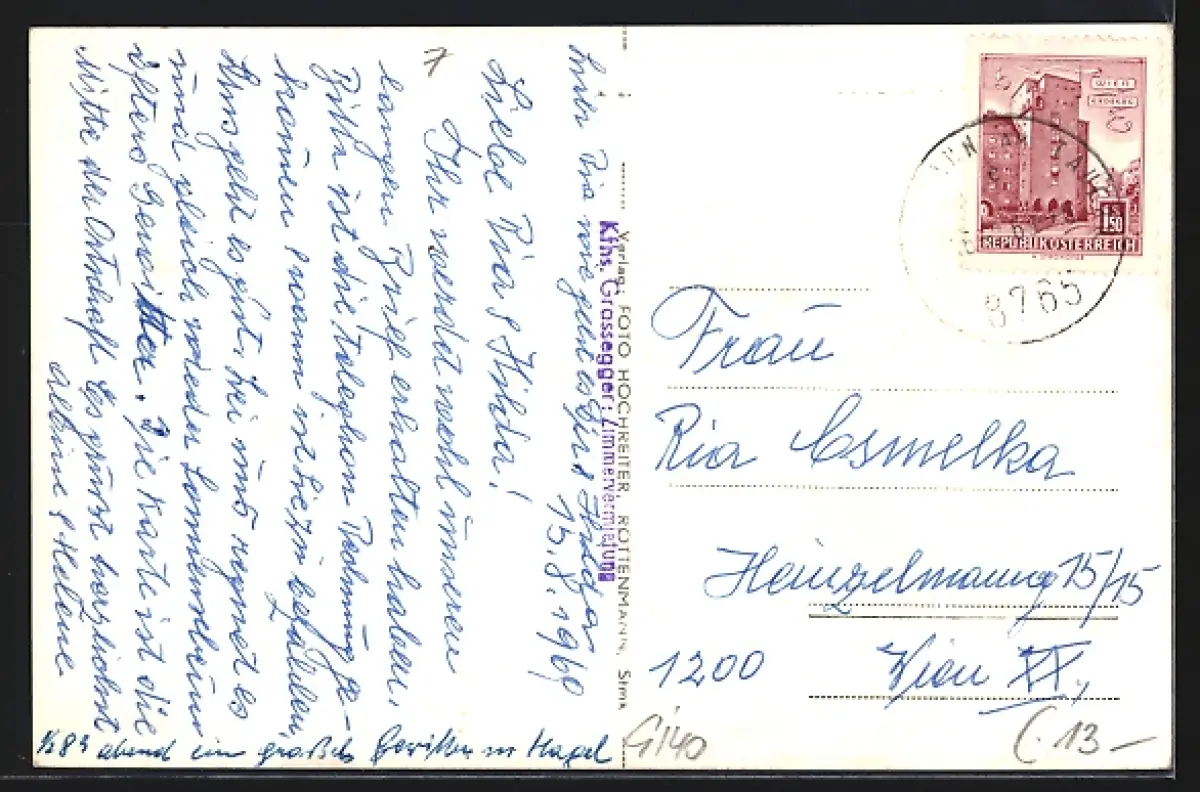 15.8.1969
Liebe Ria & Hilda!
Ihr werdet wohl unseren
langen Brief erhalten haben,
Bitte ist die Telephon Rechnung ge-
kommen & waun ist
Uns geht es gut, bei uns regnet es
und gleich wieder Sonnenschein
öfters Gewitter. Die Karte ist die
Mitte der Ortschaft. Es grüsst herzlichst
& Helene
½ 8h abend ein großes Gewitter m Hagel
Verlag: FOTO HOCHREITER, ROTTENMANN, Stmk
Kfhs. Grassegger: Zimmervermietung
WIEN
ERDBERG
1.50
S
REPUBLIK ÖSTERREICH
8765
Frau
Ria Esmelka
Heinzelmanng 15/15
1200 Wien XX.,
G140
C 13—